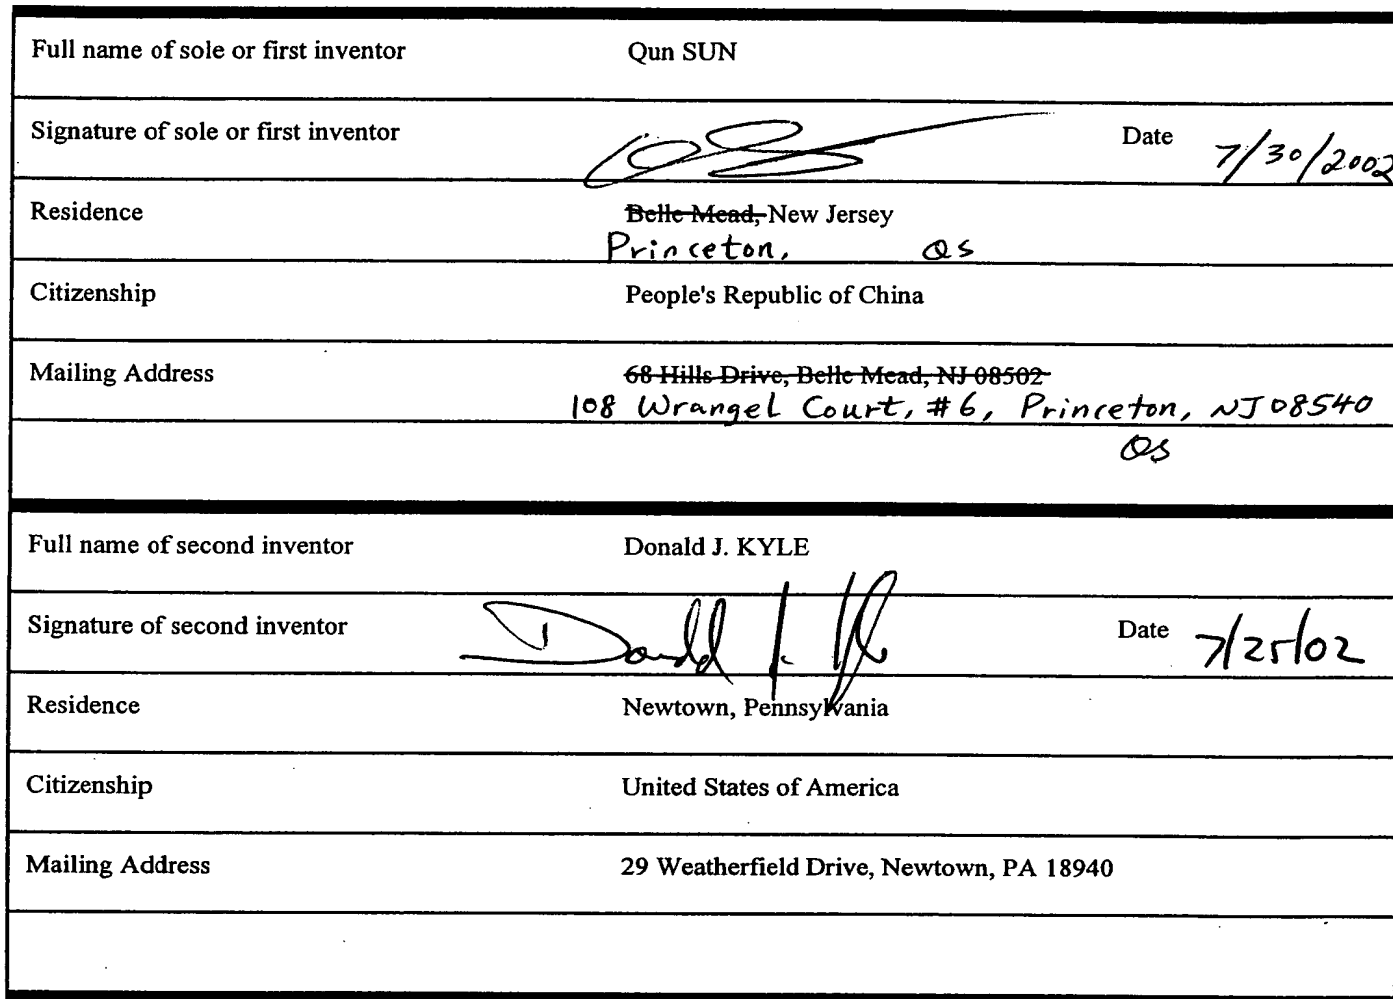 Full name of sole or first inventor Qun SUN
Signature of sole or first inventor Date 7/30/2002
Residence Belle Mead, New Jersey
Princeton, QS
Citizenship People's Republic of China
Mailing Address 68 Hills Drive, Belle Mead, NJ 08502
108 Wrangel Court, #6, Princeton, NJ 08540
QS
Full name of second inventor Donald J. KYLE
Signature of second inventor Donald J. Date 7/25/02
Residence Newtown, Pennsylvania
Citizenship United States of America
Mailing Address 29 Weatherfield Drive, Newtown, PA 18940